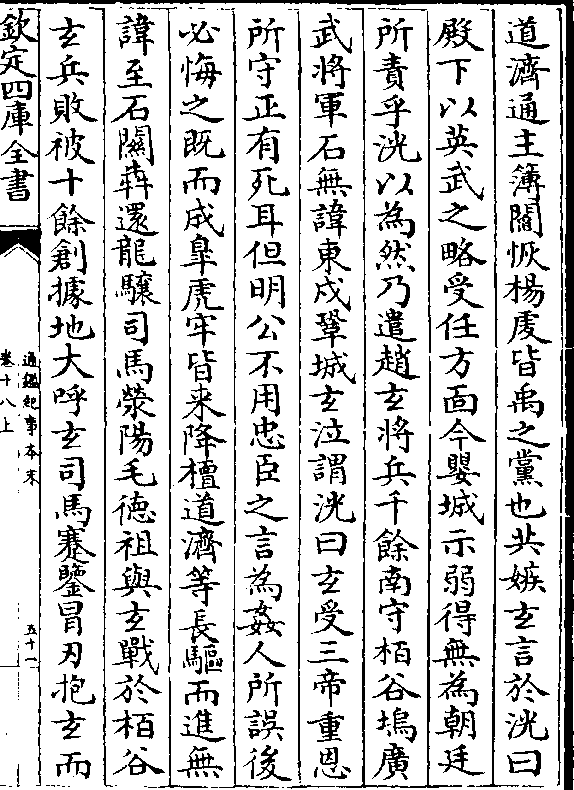 道濟通主簿閻恢楊虔皆禹之黨也共嫉玄言於洸曰
殿下以英武之略受任方面今嬰城示弱得無為朝廷
所責乎洸以為然乃遣趙玄將兵千餘南守栢谷塢廣
武將軍石無諱東戍鞏城玄泣謂洸曰玄受三帝重恩
所守正有死耳但明公不用忠臣之言為姦人所誤後
必悔之既而成臯虎牢皆来降檀道濟等長驅而進無
諱至石關犇還龍驤司馬滎陽毛徳祖與玄戰於栢谷
玄兵敗被十餘創據地大呼玄司馬蹇鑒冒刃抱玄而
欽定四庫全書
通鑑紀事本末
卷十八上
五十一